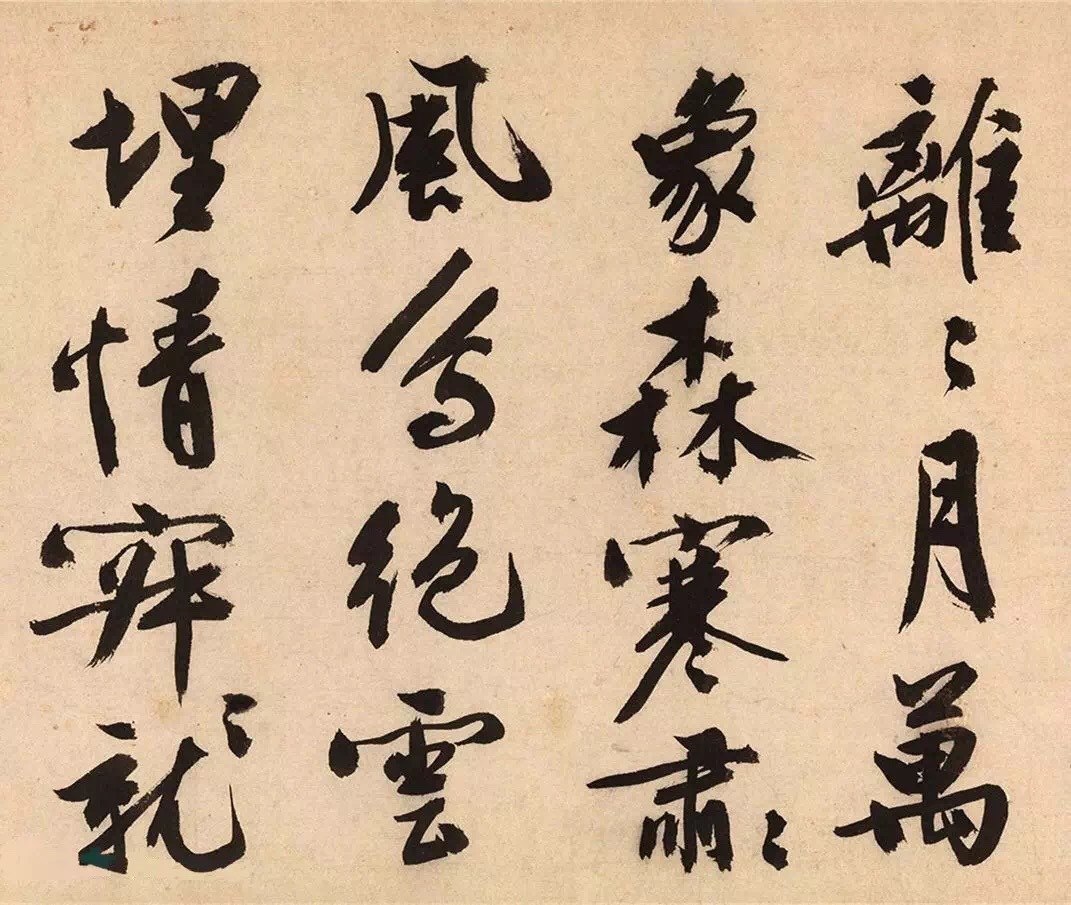 離〻月萬
象森寒肅〻
風鳥絕雲
埋情窂〻就